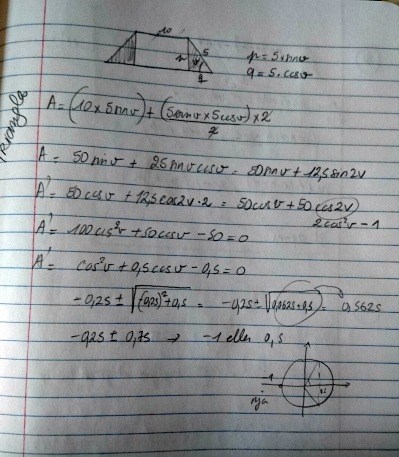 10
p 5
v
q
p = 5·sinv
q = 5·cosv
Triangle
A = (10 × 5sinv) + (5sinv × 5cosv) × 2 / 2
A = 50sinv + 25sinvcosv = 50sinv + 12,5sin2v
A' = 50cosv + 12,5cos2v·2 = 50cosv + 50cos2v
2cos²v - 1
A' = 100cos²v + 50cosv - 50 = 0
A' = cos²v + 0,5cosv - 0,5 = 0
-0,25 ± √(-0,25)² + 0,5 = -0,25 ± √0,0625 + 0,5 = 0,5625
-0,25 ± 0,75 → -1 eller 0,5
-1